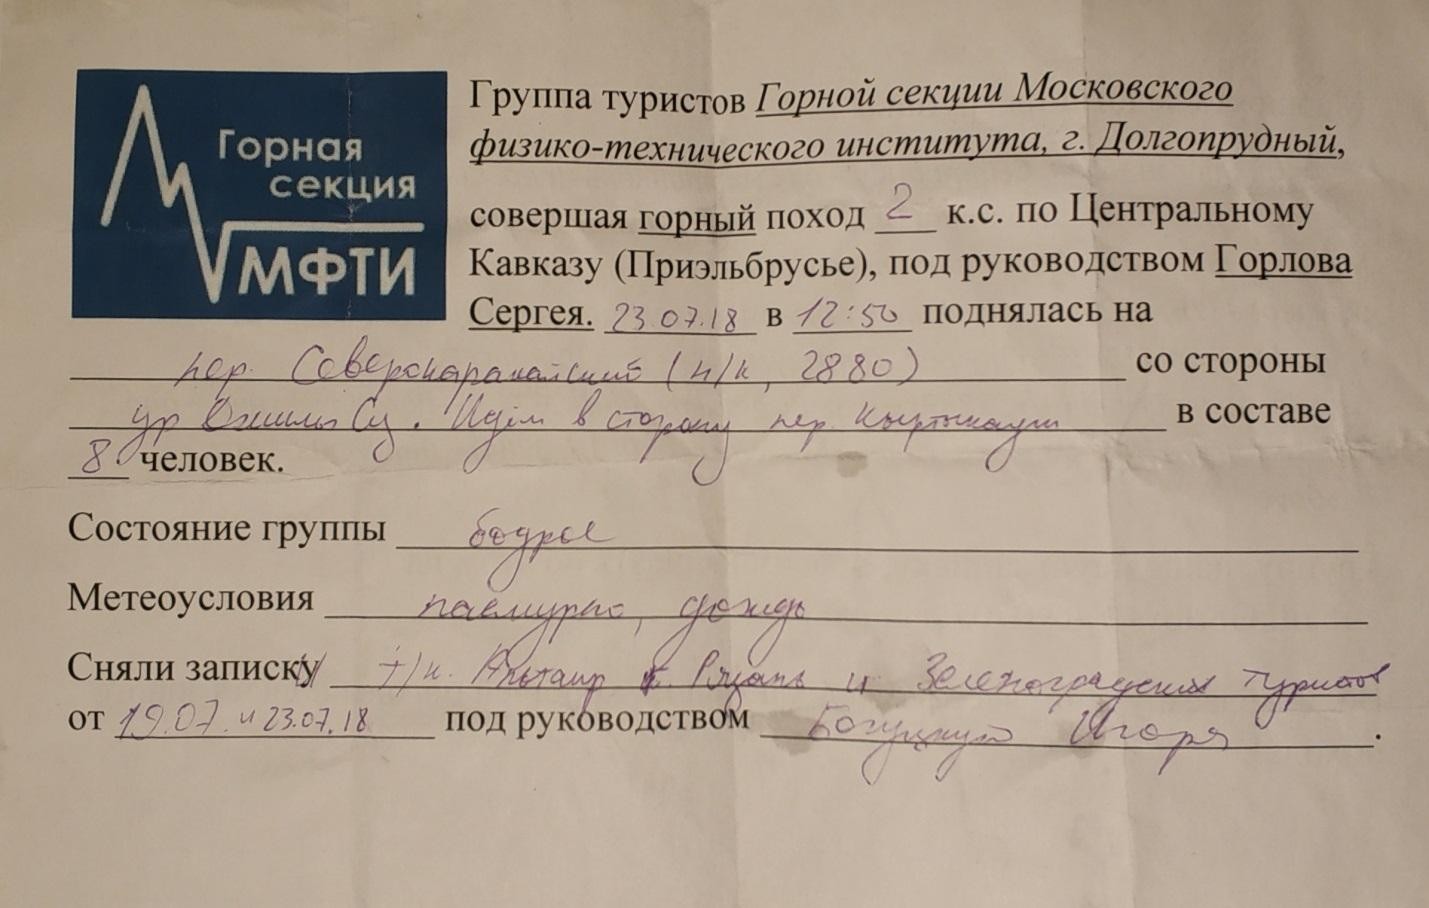 Горная
секция
МФТИ
Группа туристов Горной секции Московского
физико-технического института, г. Долгопрудный,
совершая горный поход 2 к.с. по Центральному
Кавказу (Приэльбрусье), под руководством Горлова
Сергея. 23.07.18 в 12:50 поднялась на
пер. (н/к, 2880) со стороны
ур Джилы Су. Идём в сторону пер. Кыртыкауш в составе
8 человек.
Состояние группы бодрое
Метеоусловия пасмурно, дождь
Сняли записку т/к. Альтаир г. Рязань и Зеленоградских туристов
от 19.07. и 23.07.18 под руководством Игоря.